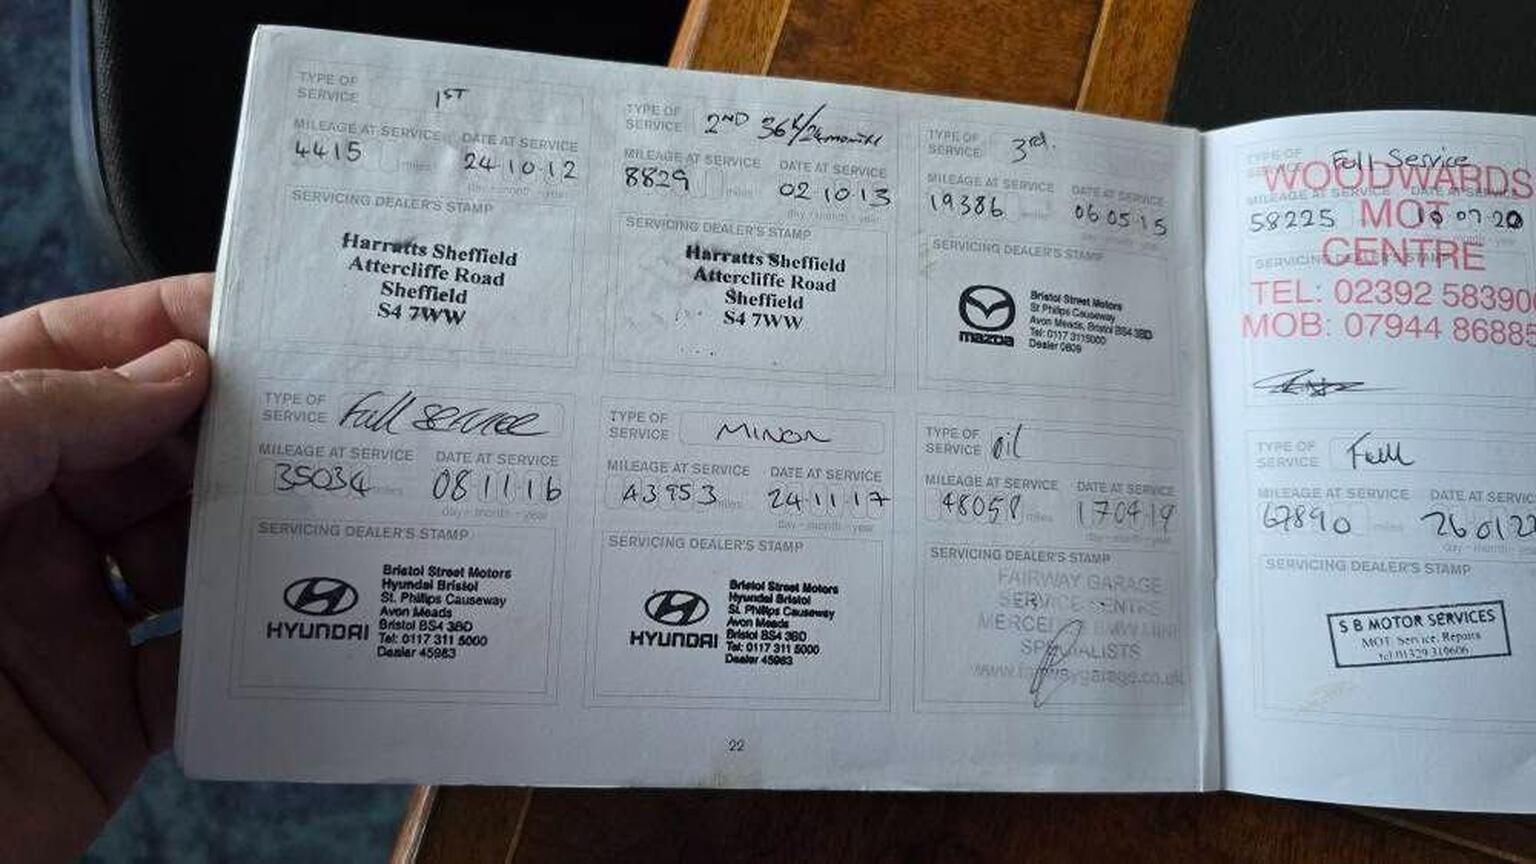 TYPE OF SERVICE 1ST
MILEAGE AT SERVICE DATE AT SERVICE
4415 miles 24 10 12
day - month - year
SERVICING DEALER'S STAMP
Harratts Sheffield
Attercliffe Road
Sheffield
S4 7WW
TYPE OF SERVICE 2ND 36K/24 months
MILEAGE AT SERVICE DATE AT SERVICE
8829 miles 02 10 13
day - month - year
SERVICING DEALER'S STAMP
Harratts Sheffield
Attercliffe Road
Sheffield
S4 7WW
TYPE OF SERVICE 3rd.
MILEAGE AT SERVICE DATE AT SERVICE
19386 miles 06 05 15
day - month - year
SERVICING DEALER'S STAMP
mazda
Bristol Street Motors
St Philips Causeway
Avon Meads, Bristol BS4 3BD
Tel: 0117 3115000
Dealer 0809
TYPE OF SERVICE Full service
MILEAGE AT SERVICE DATE AT SERVICE
35034 miles 08 11 16
day - month - year
SERVICING DEALER'S STAMP
HYUNDAI
Bristol Street Motors
Hyundai Bristol
St. Philips Causeway
Avon Meads
Bristol BS4 3BD
Tel: 0117 311 5000
Dealer 45983
TYPE OF SERVICE MINOR
MILEAGE AT SERVICE DATE AT SERVICE
43953 miles 24 11 17
day - month - year
SERVICING DEALER'S STAMP
HYUNDAI
Bristol Street Motors
Hyundai Bristol
St. Philips Causeway
Avon Meads
Bristol BS4 3BD
Tel: 0117 311 5000
Dealer 45983
TYPE OF SERVICE oil
MILEAGE AT SERVICE DATE AT SERVICE
48058 miles 17 04 19
day - month - year
SERVICING DEALER'S STAMP
FAIRWAY GARAGE
SERVICE CENTRE
BMW MINI
SPECIALISTS
www.fairwaygarage.co.uk
22
TYPE OF SERVICE Full Service
MILEAGE AT SERVICE DATE AT SERVICE
58225 07 20
SERVICING DEALER'S STAMP
WOODWARDS
MOT
CENTRE
TEL: 02392 58390
MOB: 07944 8688
TYPE OF SERVICE Full
MILEAGE AT SERVICE DATE AT SERVIC
67890 miles 26 01 2
day - month - year
SERVICING DEALER'S STAMP
S B MOTOR SERVICES
MOT, Service, Repairs
tel 01329 319606